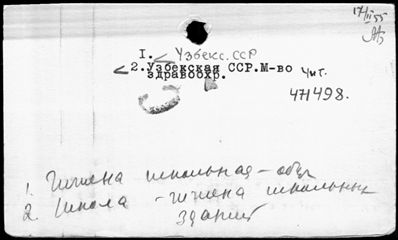 17/II 55
I. Узбекс. ССР
2. Узбекская ССР. М-во
здравоохр.
Чит.
471498.
1. Гигиена школьная - обуч
2. Школа - гигиена школьных
зданий